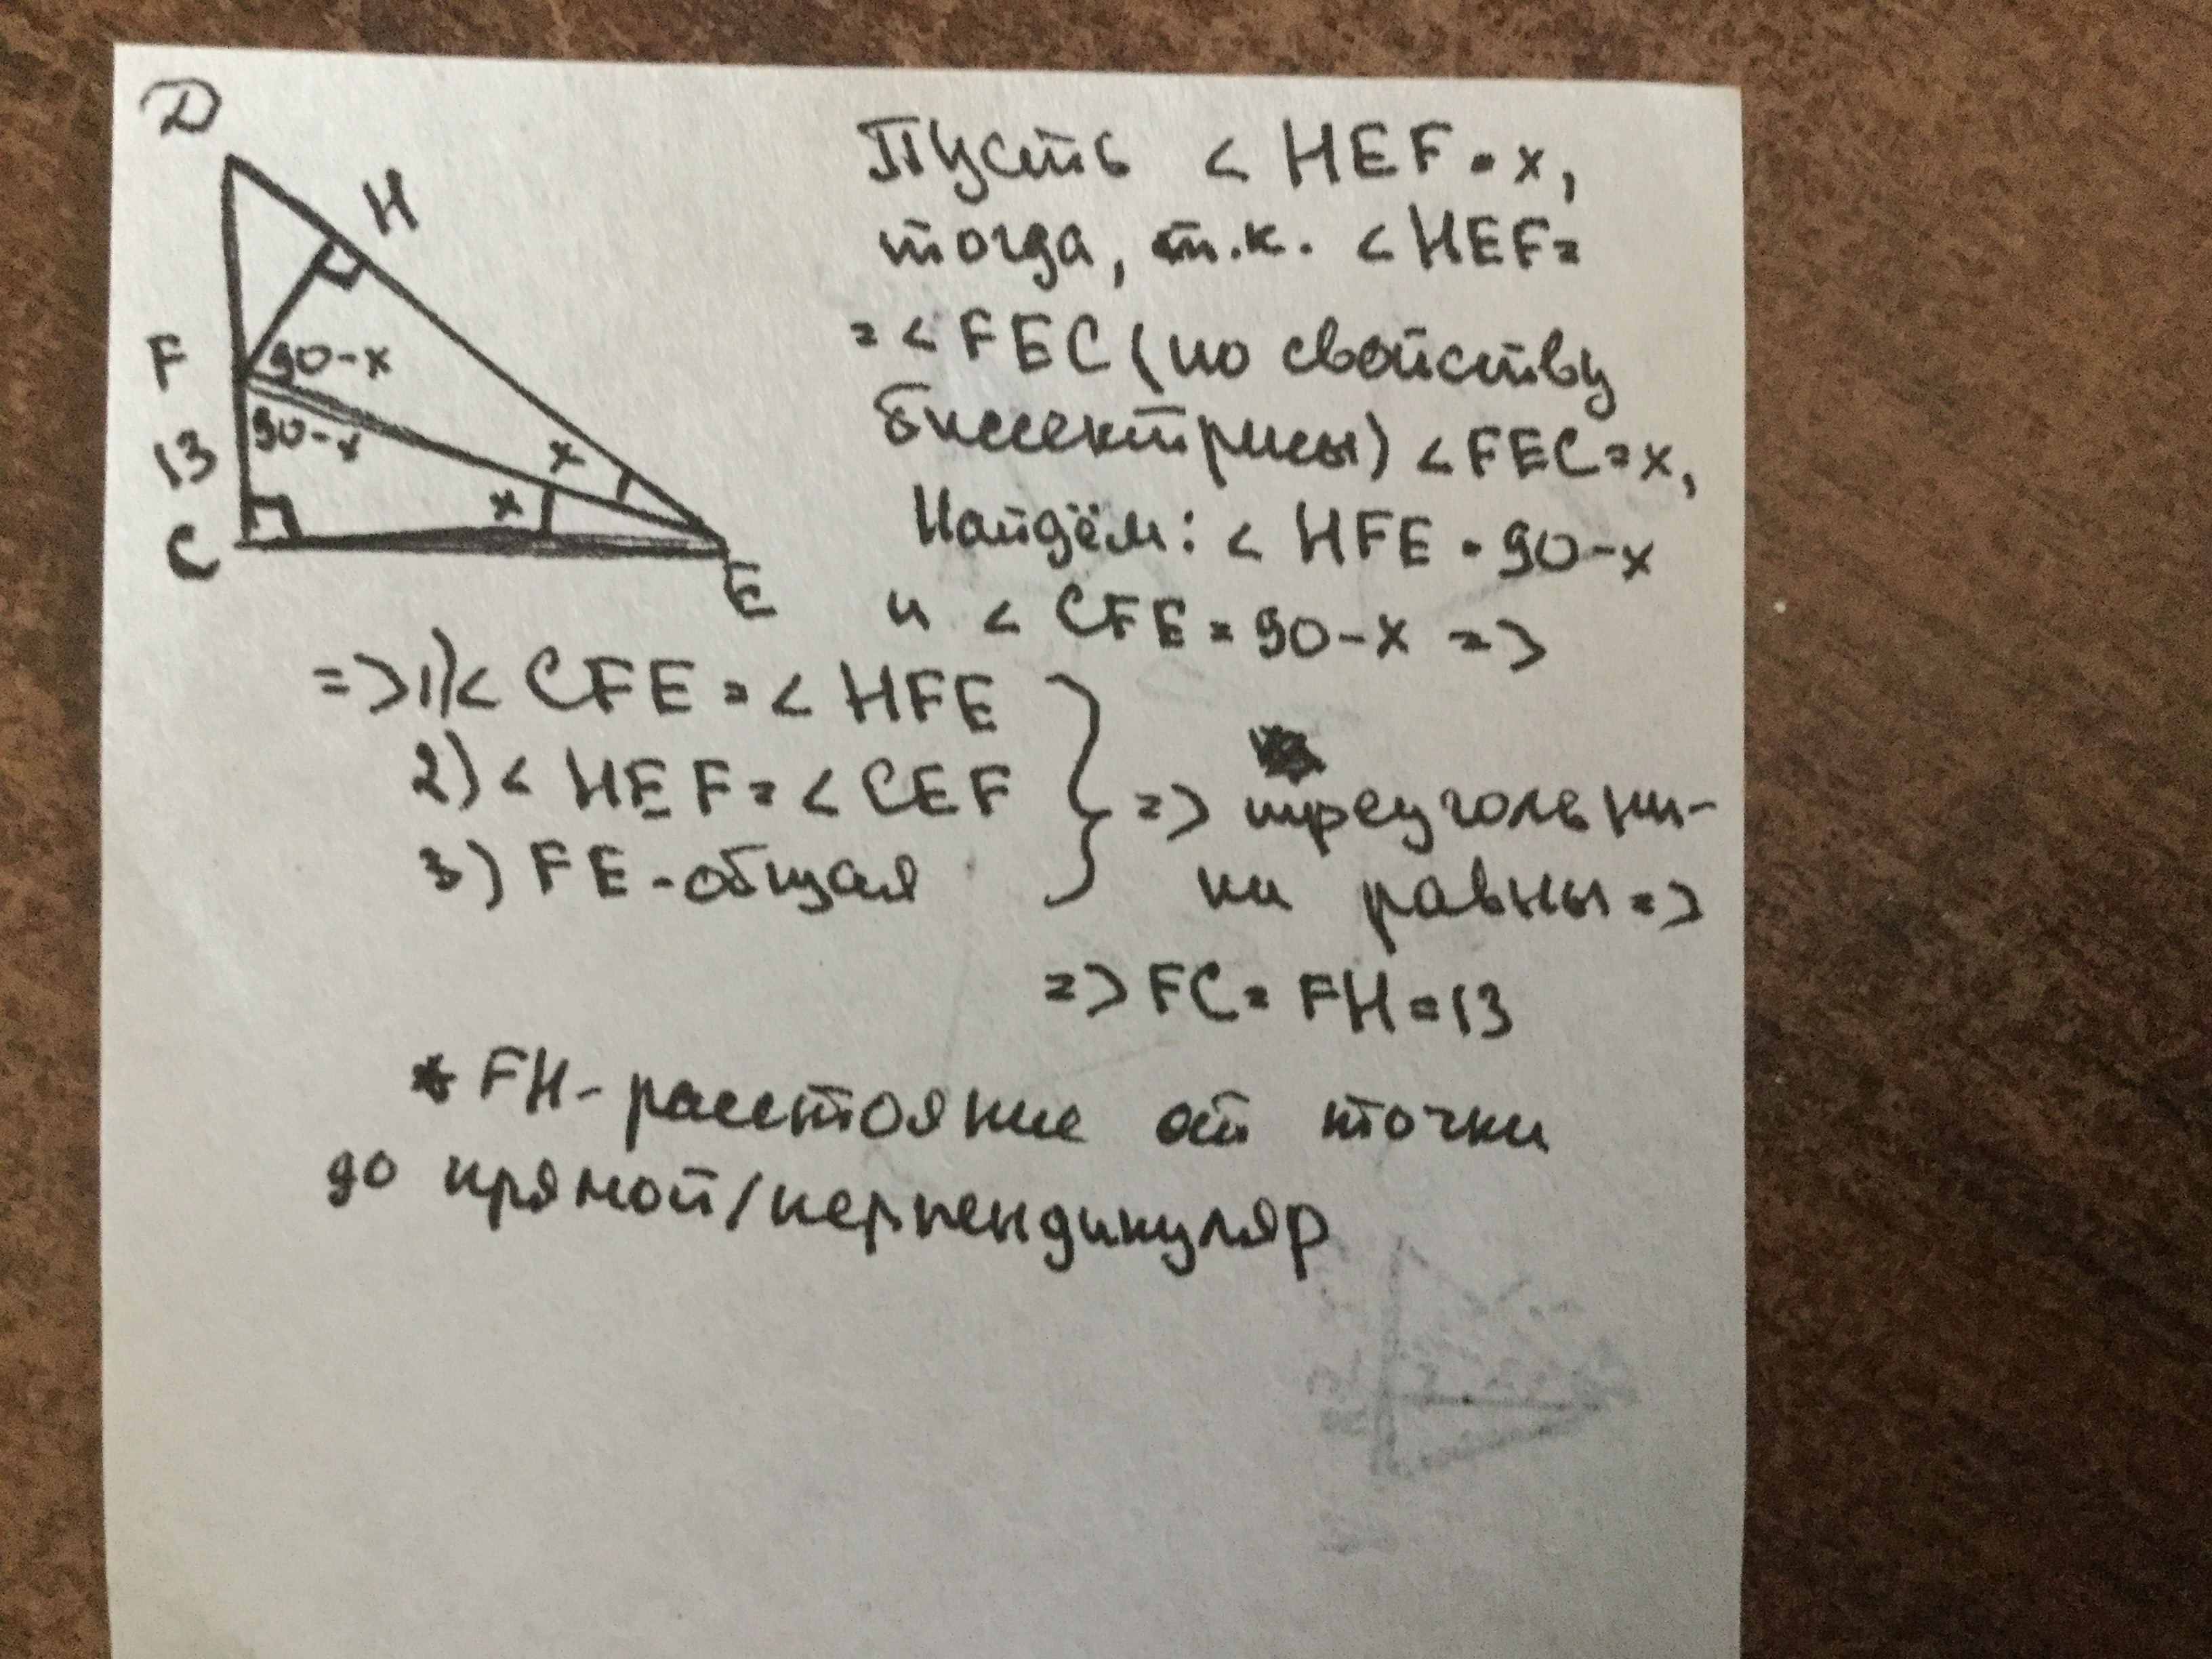 D
H
F
90-x
90-x
13
x
x
C
E
Пусть < HEF = x,
тогда, т.к. < HEF=
=< FEC (по свойству
биссектрисы) < FEC=x,
Найдём: < HFE = 90-x
и < CFE = 90-x =>
=>1)< CFE = < HFE
2) < HEF = < CEF
3) FE-общая
=> треугольни-
ки равны =>
=> FC = FH = 13
* FH - расстояние от точки
до прямой/перпендикуляр